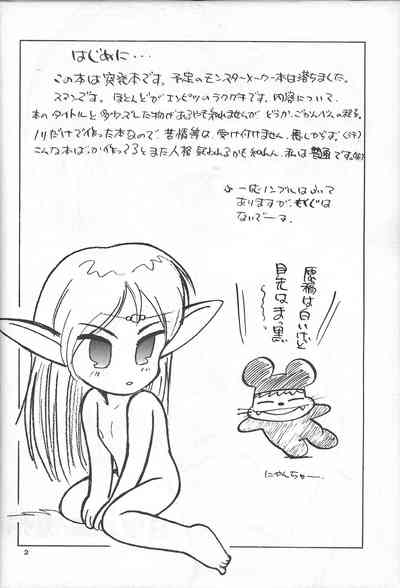 はじめに・・・
この本は突発本です。予定のモンスターメーカー本は落ちました。
スマンです。ほとんどがエンピツのラクガキです。内容について、
本のタイトルと多少ズレた物があるやも知れませんが どうか、ごかんべんの程を。
ノリだけで作った本なので、苦情等は、受け付けません。悪しからず。
こんな本ばっか作ってるとまた人格 疑われるかも知れん。私は普通です。
一応ノンブルはふって
ありますが、もくじは
ないでーーす。
原稿は白いけど
目先はまっ黒
にゃんちゅー
2